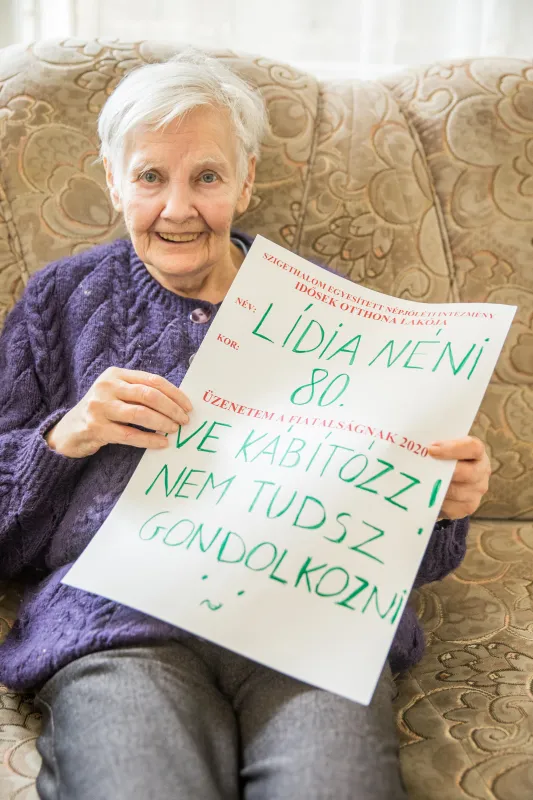 SZIGETHALOM EGYESÍTETT NÉPJÓLÉTI INTÉZMÉNY
IDŐSEK OTTHONA LAKÓJA
NÉV: LÍDIA NÉNI
KOR: 80.
ÜZENETEM A FIATALSÁGNAK 2020
VE KÁBÍTÓZZ!
NEM TUDSZ
GONDOLKOZNI